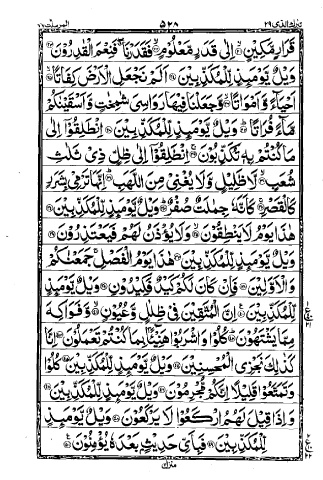 تبرك الذي ٢٩ ٥٢٨ المرسلت
قَرَارٍ مَّكِيْنٍ ۙ اِلٰى قَدَرٍ مَّعْلُوْمٍ ۙ فَقَدَرْنَا ۖ فَنِعْمَ الْقٰدِرُوْنَ
وَيْلٌ يَّوْمَئِذٍ لِّلْمُكَذِّبِيْنَ اَلَمْ نَجْعَلِ الْاَرْضَ كِفَاتًا ۙ
اَحْيَآءً وَّاَمْوَاتًا ۙ وَّجَعَلْنَا فِيْهَا رَوَاسِيَ شٰمِخٰتٍ وَّاَسْقَيْنٰكُمْ
مَّآءً فُرَاتًا ؕ وَيْلٌ يَّوْمَئِذٍ لِّلْمُكَذِّبِيْنَ اِنْطَلِقُوْٓا اِلٰى
مَا كُنْتُمْ بِهٖ تُكَذِّبُوْنَ ۚ اِنْطَلِقُوْٓا اِلٰى ظِلٍّ ذِيْ ثَلٰثِ
شُعَبٍ ۙ لَّا ظَلِيْلٍ وَّلَا يُغْنِيْ مِنَ اللَّهَبِ ؕ اِنَّهَا تَرْمِيْ بِشَرَرٍ
كَالْقَصْرِ ۚ كَاَنَّهٗ جِمٰلَتٌ صُفْرٌ ؕ وَيْلٌ يَّوْمَئِذٍ لِّلْمُكَذِّبِيْنَ
هٰذَا يَوْمُ لَا يَنْطِقُوْنَ ۙ وَلَا يُؤْذَنُ لَهُمْ فَيَعْتَذِرُوْنَ
وَيْلٌ يَّوْمَئِذٍ لِّلْمُكَذِّبِيْنَ هٰذَا يَوْمُ الْفَصْلِ ۚ جَمَعْنٰكُمْ
وَالْاَوَّلِيْنَ فَاِنْ كَانَ لَكُمْ كَيْدٌ فَكِيْدُوْنِ وَيْلٌ يَّوْمَئِذٍ
لِّلْمُكَذِّبِيْنَ ؑ اِنَّ الْمُتَّقِيْنَ فِيْ ظِلٰلٍ وَّعُيُوْنٍ ۙ وَّفَوَاكِهَ
مِمَّا يَشْتَهُوْنَ ؕ كُلُوْا وَاشْرَبُوْا هَنِيْٓئًا ۢ بِمَا كُنْتُمْ تَعْمَلُوْنَ اِنَّا
كَذٰلِكَ نَجْزِي الْمُحْسِنِيْنَ وَيْلٌ يَّوْمَئِذٍ لِّلْمُكَذِّبِيْنَ كُلُوْا
وَتَمَتَّعُوْا قَلِيْلًا اِنَّكُمْ مُّجْرِمُوْنَ وَيْلٌ يَّوْمَئِذٍ لِّلْمُكَذِّبِيْنَ
وَاِذَا قِيْلَ لَهُمُ ارْكَعُوْا لَا يَرْكَعُوْنَ وَيْلٌ يَّوْمَئِذٍ
لِّلْمُكَذِّبِيْنَ فَبِاَيِّ حَدِيْثٍ ۢ بَعْدَهٗ يُؤْمِنُوْنَ ؑ
منزل